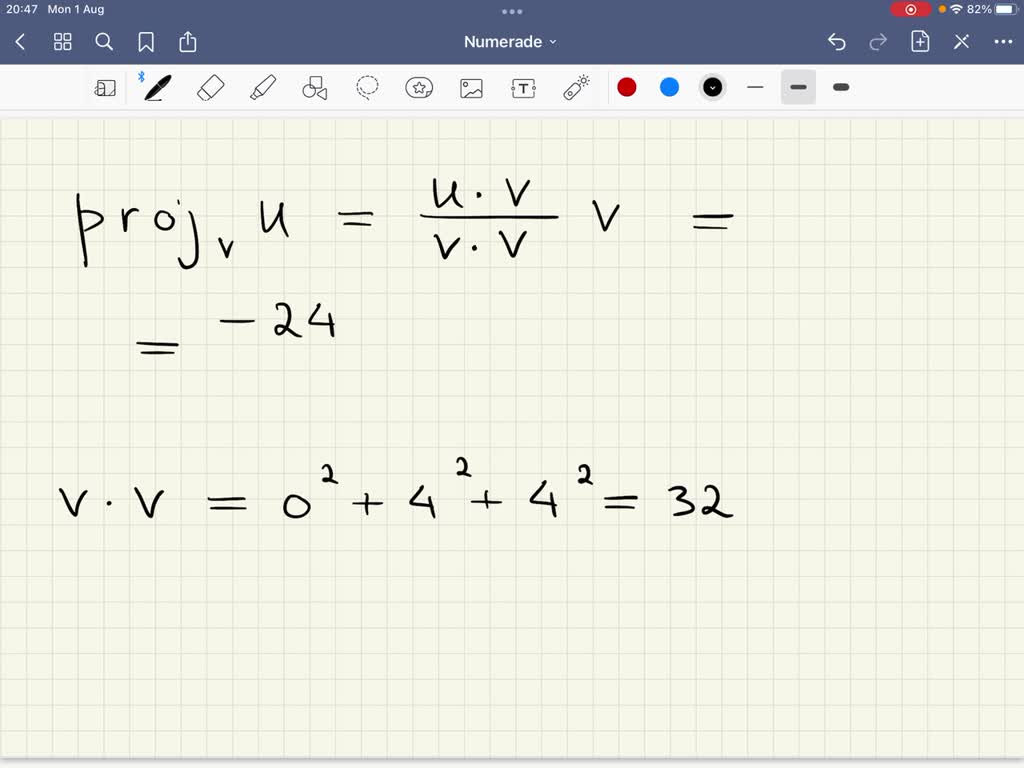 20:47 Mon 1 Aug 82%
Numerade
T
proj_v u = \frac{u · v}{v · v} v =
= -24
v · v = 0² + 4² + 4² = 32